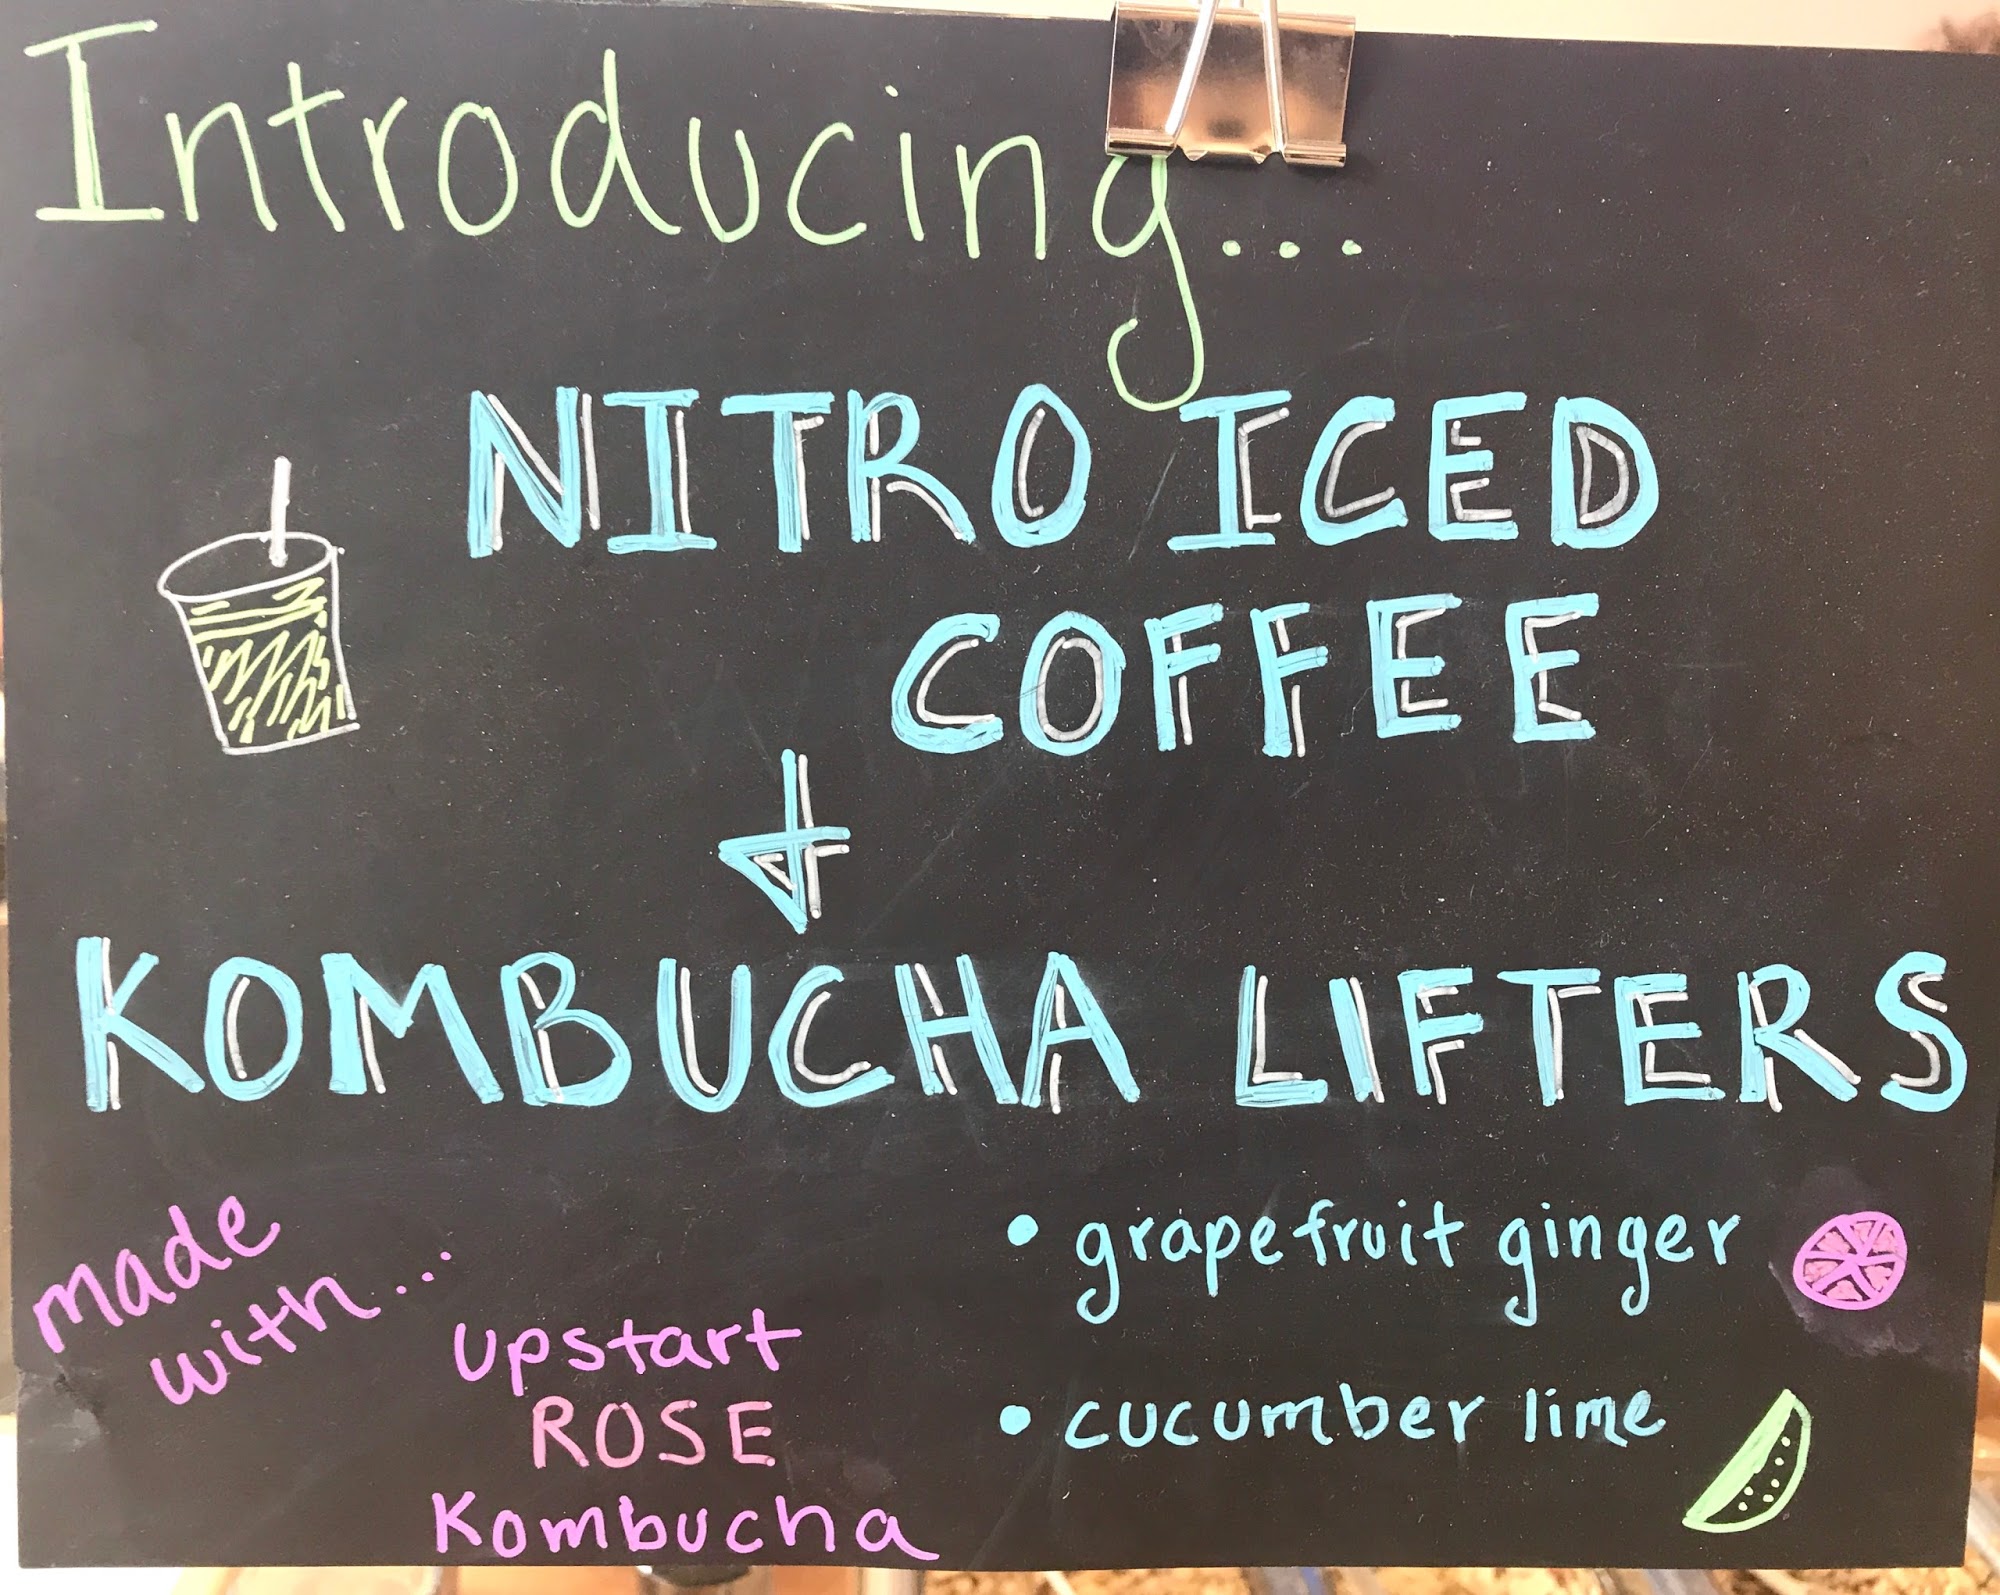 Introducing...
NITRO ICED
COFFEE
+
KOMBUCHA LIFTERS
made
with...
upstart
ROSE
Kombucha
• grapefruit ginger
• cucumber lime